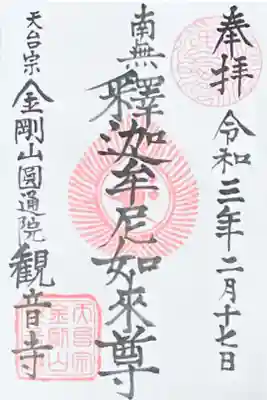 奉拝
令和三年二月十七日
南無釋迦牟尼如來尊
天台宗
金剛山圓通院
観音寺